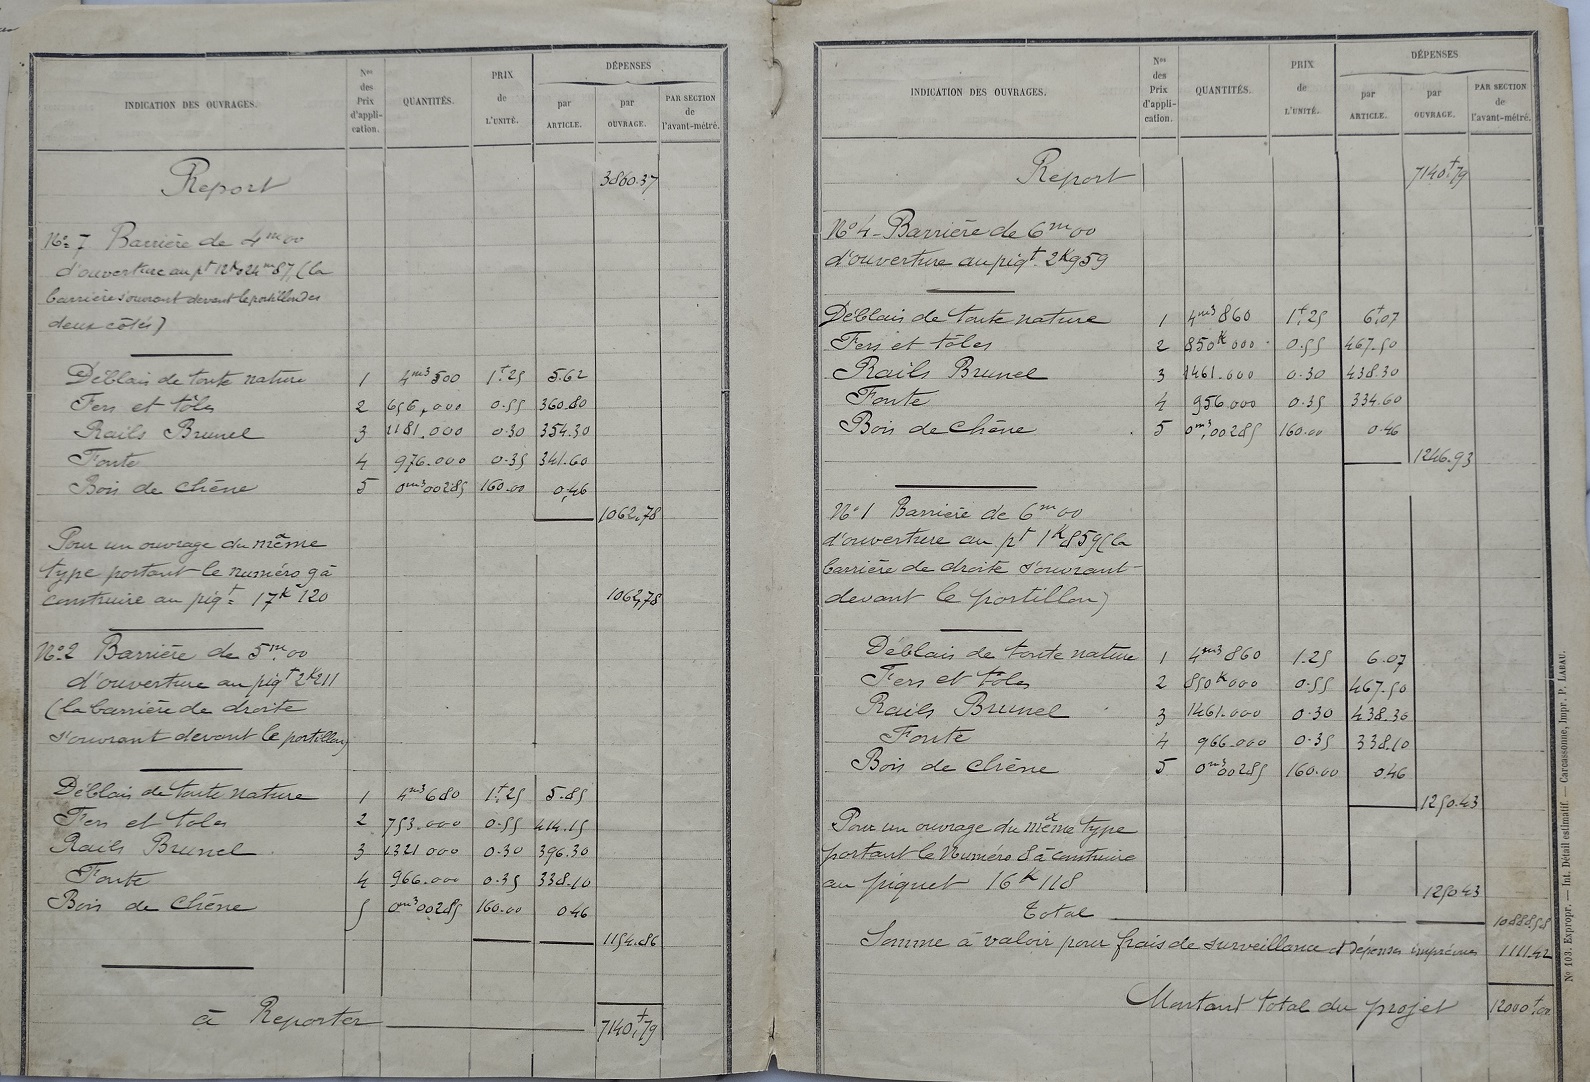 INDICATION DES OUVRAGES. Nos des Prix d'application. QUANTITÉS. PRIX de L'UNITÉ. DÉPENSES par ARTICLE. par OUVRAGE. PAR SECTION de l'avant-métré.
Report 3860.37
No 7 Barrière de 4m00
d'ouverture au pt 12K024m87 (la
barrière s'ouvrant devant le portillon des
deux côtés)
Déblais de toute nature 1 4m3500 1f.25 5.62
Fers et tôles 2 656,000 0.55 360.80
Rails Brunel 3 1181,000 0.30 354.30
Fonte 4 976.000 0.35 341.60
Bois de chêne 5 0m300285 160.00 0,46
1062,78
Pour un ouvrage du même
type portant le numéro 9 à
construire au piqt: 17K120 1062,78
No 2 Barrière de 5m00
d'ouverture au piqt 2K211
(la barrière de droite
s'ouvrant devant le portillon)
Déblais de toute nature 1 4m3680 1f.25 5.85
Fers et toles 2 753.000 0.55 414.15
Rails Brunel 3 1321 000 0.30 396.30
Fonte 4 966.000 0.35 338.10
Bois de Chêne 5 0m300285 160.00 046
1154.86
à Reporter 7140f.79
INDICATION DES OUVRAGES. Nos des Prix d'application. QUANTITÉS. PRIX de L'UNITÉ. DÉPENSES par ARTICLE. par OUVRAGE. PAR SECTION de l'avant-métré.
Report 7140f.79
No 4 - Barrière de 6m00
d'ouverture au piqt. 2K959
Déblais de toute nature 1 4m3860 1f.25 6f.07
Fers et tôles 2 850K000 0.55 467.50
Rails Brunel 3 1461.000 0.30 438.30
Fonte 4 956.000 0.35 334.60
Bois de chêne 5 0m3,00285 160.00 0.46
1246.93
No 1 Barrière de 6m00
d'ouverture au pt 1K859 (la
barrière de droite s'ouvrant
devant le portillon)
Déblais de toute nature 1 4m3860 1.25 6.07
Fers et tôles 2 850K000 0.55 467.50
Rails Brunel 3 1461.000 0.30 438.30
Fonte 4 966.000 0.35 338.10
Bois de Chêne 5 0m300285 160.00 046
1250.43
Pour un ouvrage du même type
portant le Numéro 8 à construire
au piquet 16K118 1250.43
Total 10888,58
Somme à valoir pour frais de surveillance et dépenses imprévues 1111.42
Montant total du projet 12000f,00
No 103. Expropr. — Int. Détail estimatif. — Carcassonne, Impr. P. LABAU.